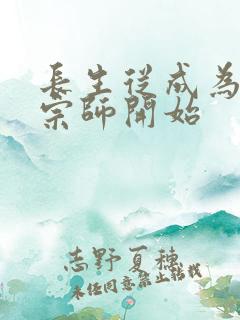 長生從成為
宗師開始
志野夏穗
未任同意禁止轉載